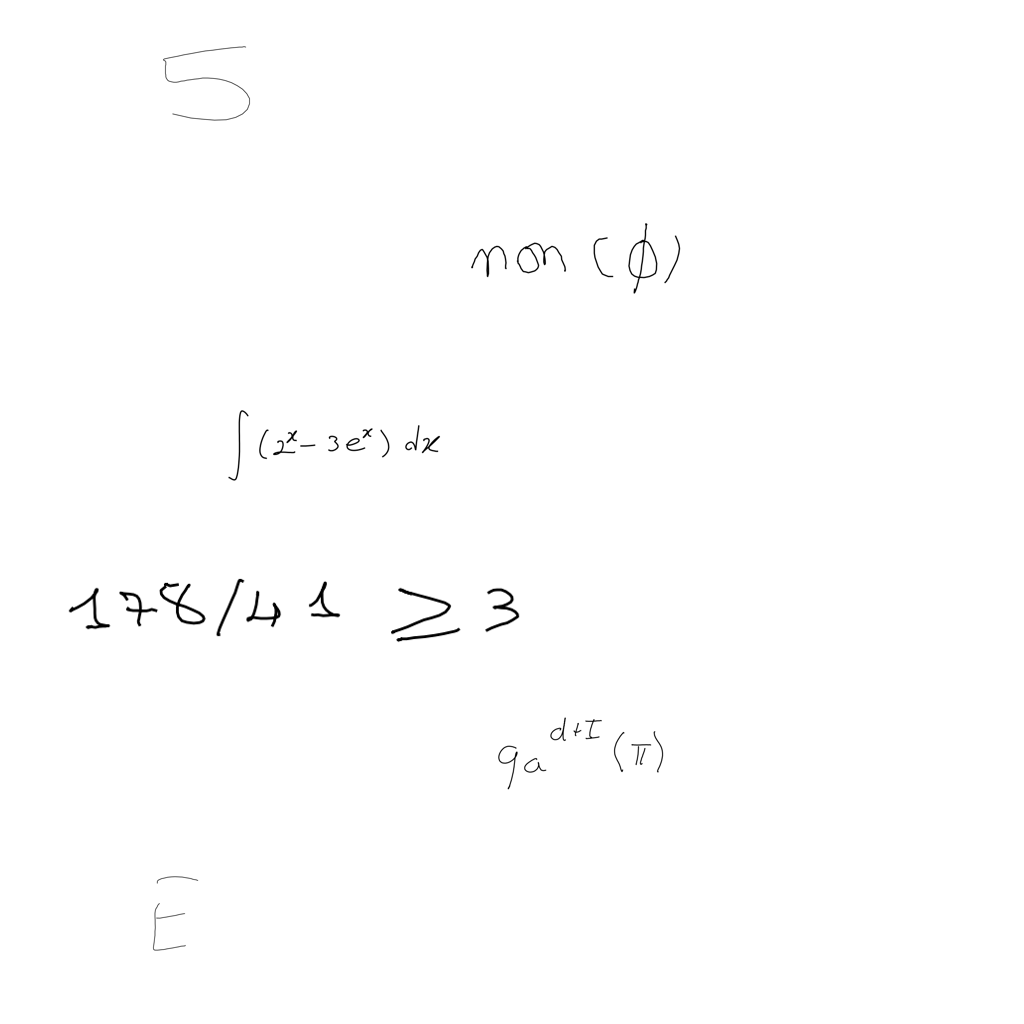 5
non(ϕ)
∫(2ˣ-3eˣ) dx
178/41 ≥ 3
9a^{d+I}(π)
E̅